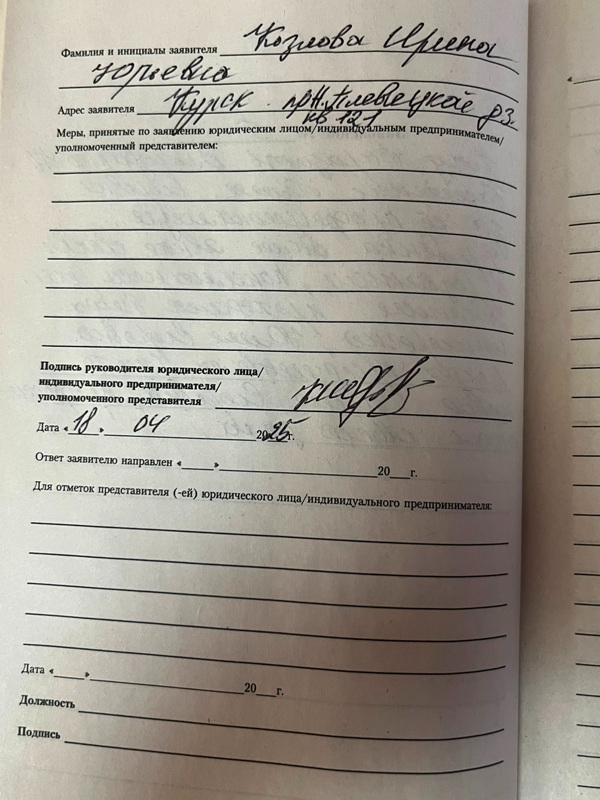 Фамилия и инициалы заявителя Козлова Ирина
Юрьевна
Адрес заявителя Курск. пр. Н. Плевицкой д3.
кв 121
Меры, принятые по заявлению юридическим лицом/индивидуальным предпринимателем/
уполномоченный представителем:
Подпись руководителя юридического лица/
индивидуального предпринимателя/
уполномоченного представителя
Дата «18» 04 2025г.
Ответ заявителю направлен «____»____20___г.
Для отметок представителя (-ей) юридического лица/индивидуального предпринимателя:
Дата «____»____20___г.
Должность
Подпись